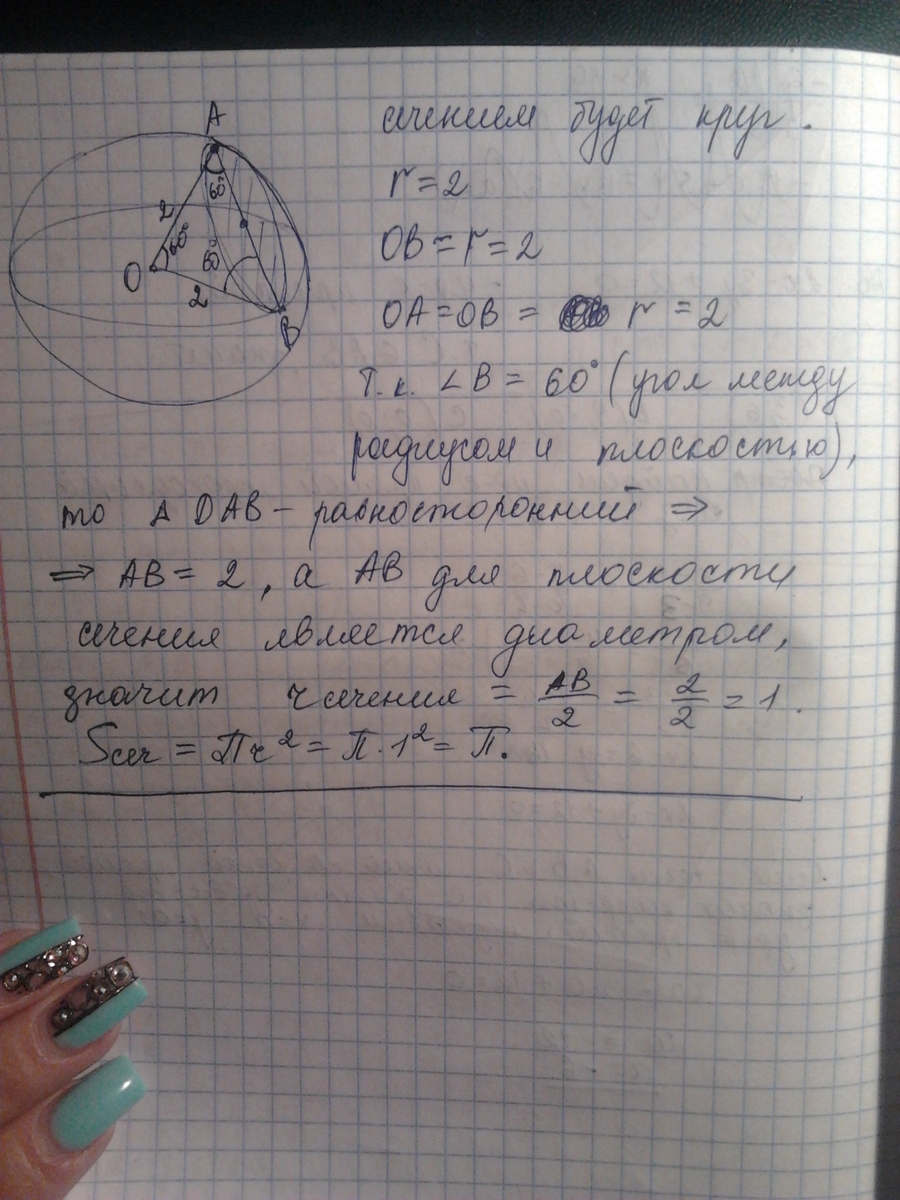 A
2
60°
60°
60°
O
2
B
сечением будет круг.
r=2
OB=r=2
OA=OB= r=2
Т.к. ∠B=60° (угол между
радиусом и плоскостью),
то Δ OAB – равносторонний ⇒
⇒ AB=2, а AB для плоскости
сечения является диаметром,
значит r сечения = AB/2 = 2/2 = 1.
Sсеч = Пr² = П·1² = П.